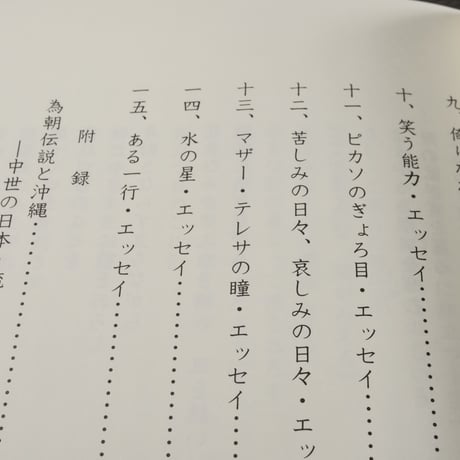 九、倚りかか
十、笑う能力・エッセイ………
十一、ピカソのぎょろ目・エッセイ………
十二、苦しみの日々、哀しみの日々・エッ
十三、マザー・テレサの瞳・エッセイ………
十四、水の星・エッセイ………
十五、ある一行・エッセイ………
附録
為朝伝説と沖縄………
―中世の日本